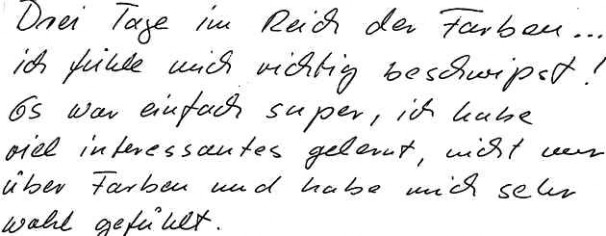 Drei Tage im Reich der Farben...
ich fühle mich richtig beschwipst!
Es war einfach super, ich habe
viel interessantes gelernt, nicht nur
über Farben und habe mich sehr
wohl gefühlt.